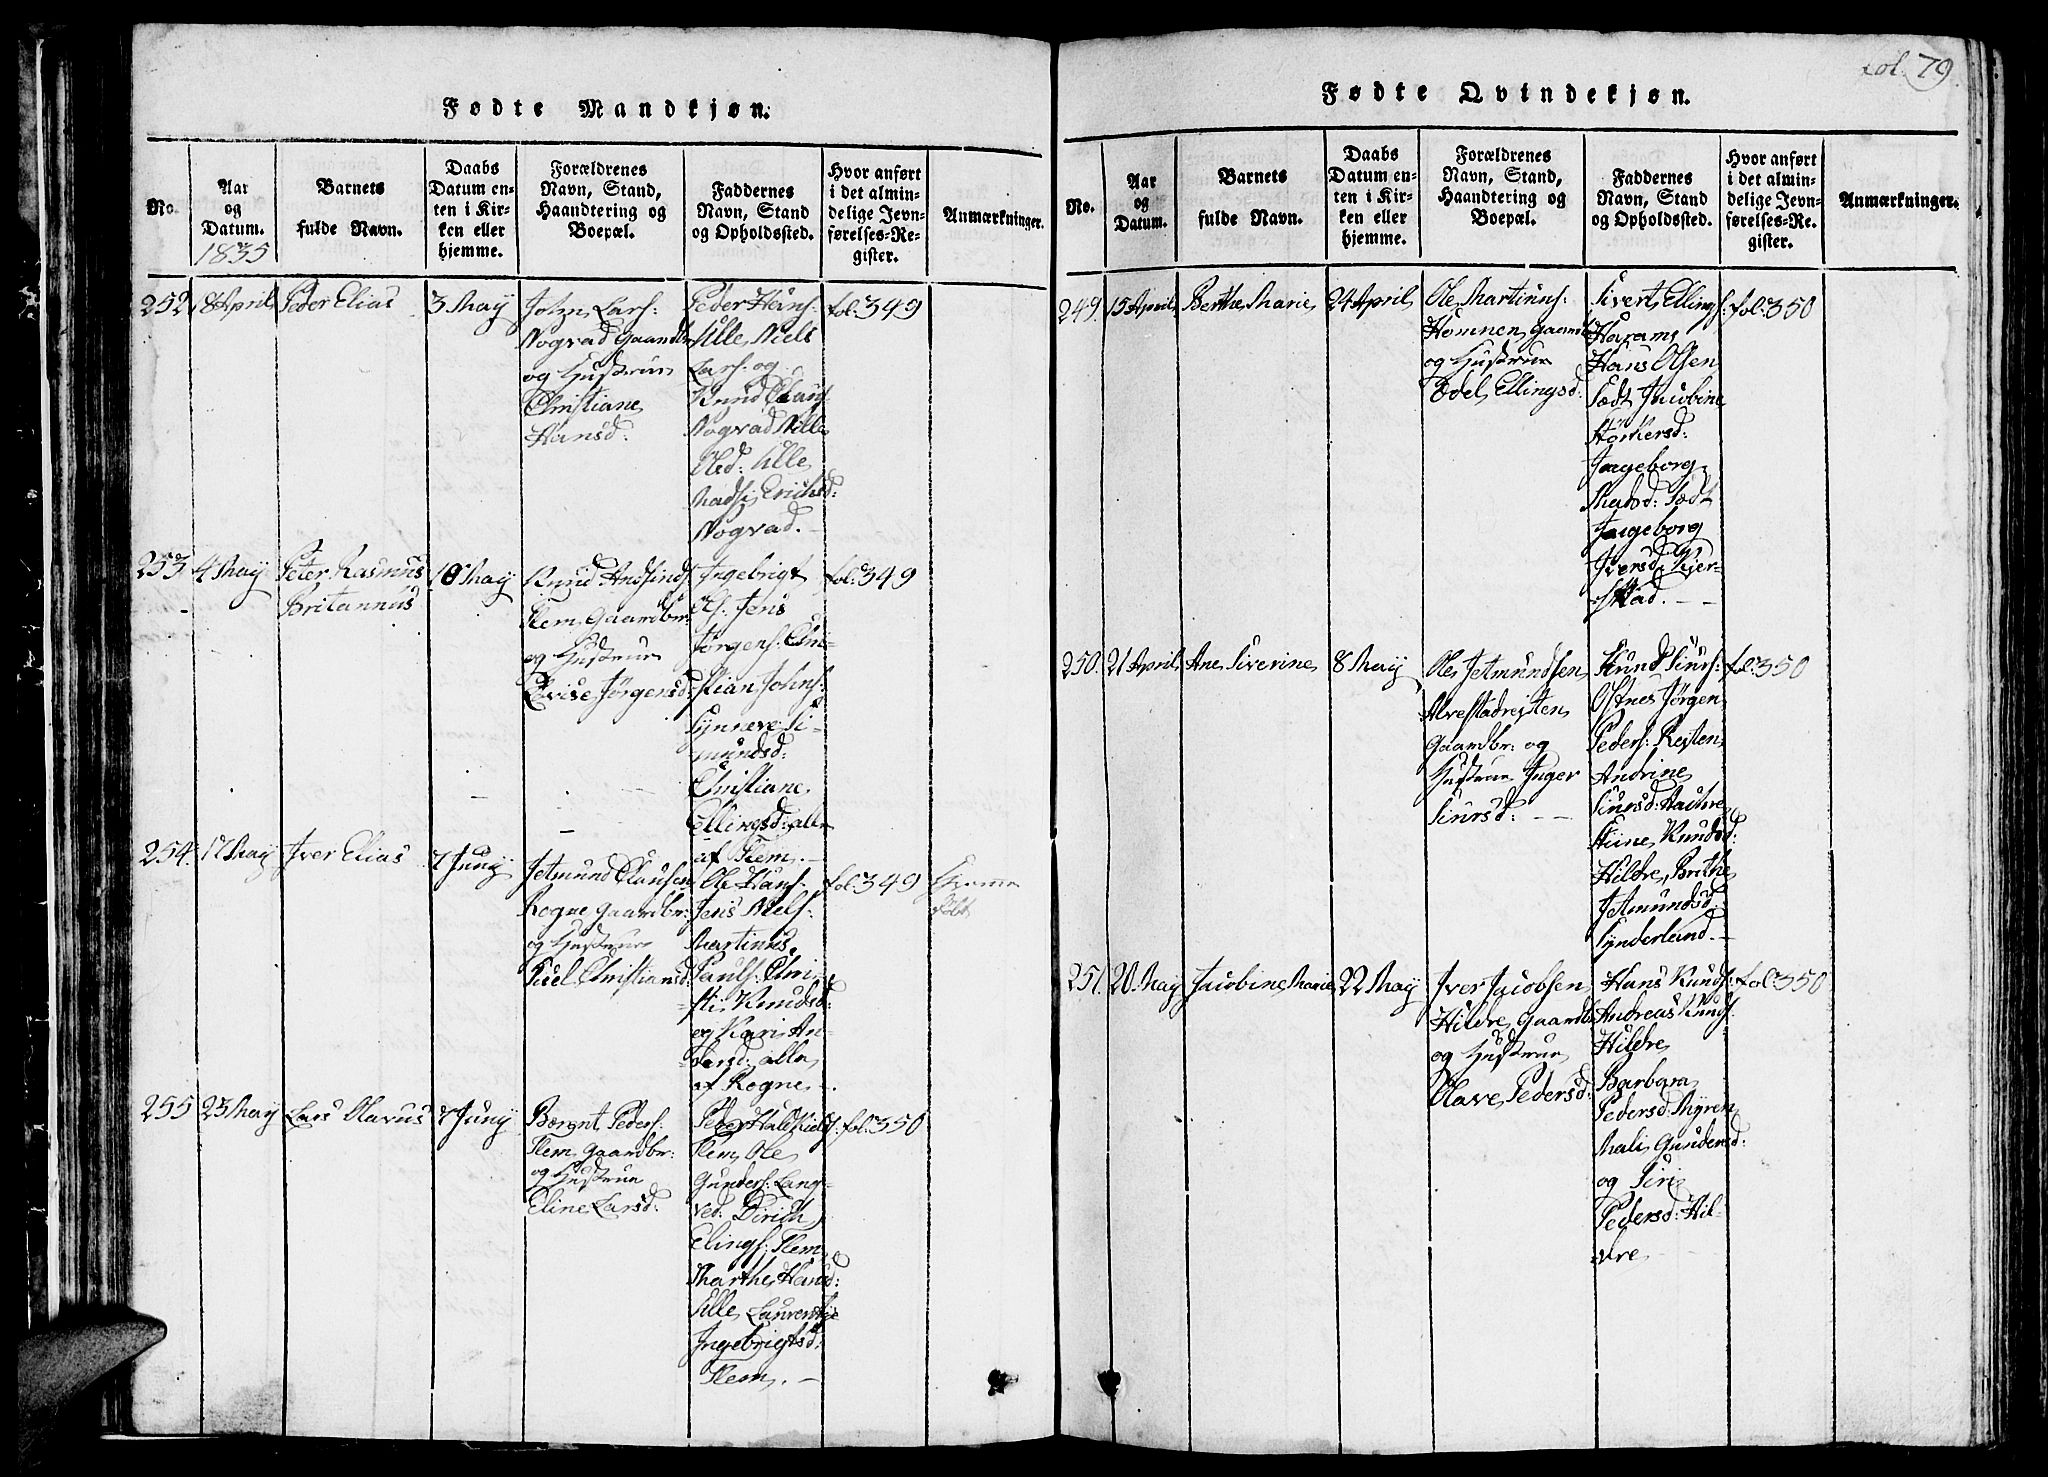 Fol. 79
Fødte Mandkjøn.
No.
Aar
og
Datum.
1835
Barnets
fulde Navn.
Daabs
Datum en-
ten i Kir-
ken eller
hjemme.
Forældrenes
Navn, Stand,
Haandtering og
Boepæl.
Faddernes
Navn, Stand
og Opholdssted.
Hvor anført
i det almin-
delige Jevn-
førelses-Re-
gister.
Anmærkninger.
252
18 April
Peder Elias
3 May
John Lars:
Nogvad Gaardbr
og Hustrue
Christiane
Hansd:
Peder Hans:
Ulle Niels
Lars: og
Knud
Nogvad Nille
Ulle
Madsi Erichsd:
Nogvad.
fol: 349
253
4 May
Peter Rasmus
Britannus
10 May
Knud
Slem Gaardbr:
og Hustrue
Lovise Jørgensd:
Ingebrigt
Ols: Jens
Jørgens: Chri-
stian Johns:
Synneve Si-
mundsd:
Christiane
Ellingsd: alle
af Slem. -
fol: 349
254.
17 May
Iver Elias
7 Juny
Jetmund Clausen
Rogne Gaardbr:
og Hustrue
Christiansd:
Ole Hans:
Jens Niels:
Martinus
Pauls: Chri-
sti Knudsd:
og Kari An-
dersd: alle
af Rogne -.
fol: 349
255
23 May
Lars Olavus
7 Juny
Bærnt Peders:
Slem Gaardbr:
og Hustrue
Eline Larsd:
Peder
Slem Ole
Gunders: Lang-
ved: Dirich
Elings: Slem
Marthe Hansd:
Ulle
Ingebrigtsd:
Slem. -
fol: 350
Fødte Qvindekjøn.
No.
Aar
og
Datum.
Barnets
fulde Navn.
Daabs
Datum en-
ten i Kir-
ken eller
hjemme.
Forældrenes
Navn, Stand,
Haandtering og
Boepæl.
Faddernes
Navn, Stand
og Opholdssted.
Hvor anført
i det almin-
delige Jevn-
førelses-Re-
gister.
Anmærkninger.
249.
15 April
Berthe Marie
24 April
Ole Martinus:
Homnen Gaardbr
og Hustrue
Edel Ellingsd:
Sivert Ellings:
Harams
Hans Olsen
Sædt Jacobine
Ingeborg
Madsd: Sædt
Ingeborg
Iversd: Kjer-
stad. - -
fol: 350
250.
21 April
Ane Siverine
8 May
Ole Jetmundsen
Alvestadreiten
Gaardbr: og
Hustrue Inger
Siursd: - -
Knud Siurs:
Østnes Jørgen
Peders: Reiten
Andrine
Siursd:
Stine Knudsd:
Hildre, Brithe
Jetmundsd:
Synderland. -
fol: 350
251.
20 May
Jacobine Marie
22 May
Iver Jacobsen
Hildre Gaardbr
og Hustrue
Olave Pedersd:
Hans Knuds:
Andreas Knuds.
Hildre
Barbara
Pedersd: Myren
Mali Gundersd:
og Siri
Pedersd: Hil-
dre
fol: 350